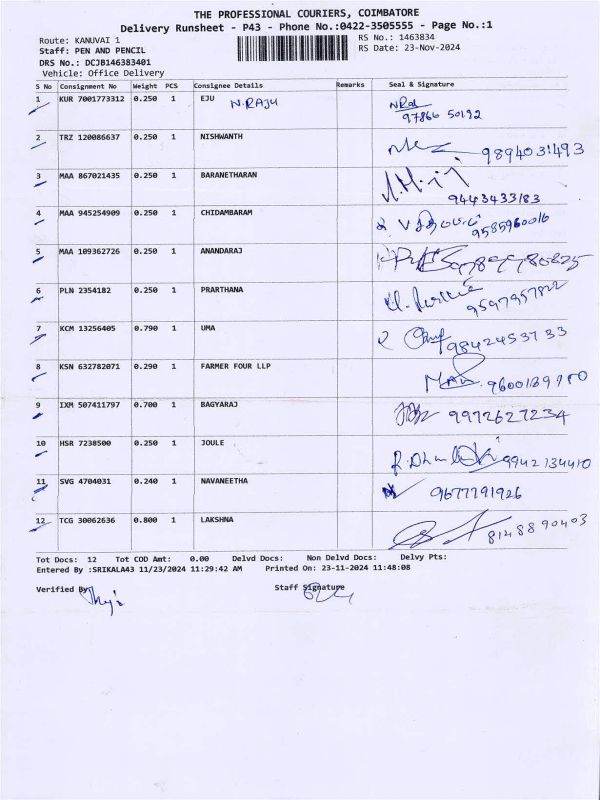 THE PROFESSIONAL COURIERS, COIMBATORE
Delivery Runsheet - P43 - Phone No.:0422-3505555 - Page No.:1
Route: KANUVAI 1
RS No.: 1463834
Staff: PEN AND PENCIL
RS Date: 23-Nov-2024
DRS No.: DCJB146383401
Vehicle: Office Delivery
S No Consignment No Weight PCS Consignee Details Remarks Seal & Signature
1 KUR 7001773312 0.250 1 EJU N.RAJU 97866 50192
2 TRZ 120086637 0.250 1 NISHWANTH 9894031493
3 MAA 867021435 0.250 1 BARANETHARAN 9443433183
4 MAA 945254909 0.250 1 CHIDAMBARAM 9585960016
5 MAA 109362726 0.250 1 ANANDARAJ
6 PLN 2354182 0.250 1 PRARTHANA 9597957822
7 KCM 13256405 0.790 1 UMA 9842453733
8 KSN 632782071 0.290 1 FARMER FOUR LLP
9 IXM 507411797 0.700 1 BAGYARAJ 9972627234
10 HSR 7238500 0.250 1 JOULE 9942134410
11 SVG 4704031 0.240 1 NAVANEETHA 9677791926
12 TCG 30062636 0.800 1 LAKSHNA 8148890403
Tot Docs: 12 Tot COD Amt: 0.00 Delvd Docs: Non Delvd Docs: Delvy Pts:
Entered By :SRIKALA43 11/23/2024 11:29:42 AM Printed On: 23-11-2024 11:48:08
Verified By Staff Signature